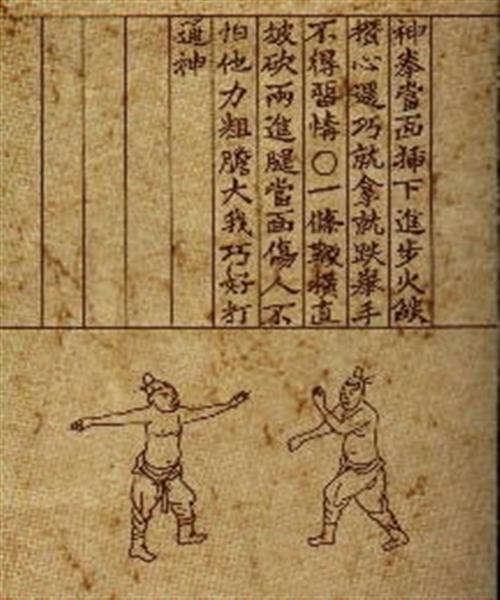 神拳當面插下進步火焰
攢心遇巧就拿就跌舉手
不得留情○一條鞭橫直
披砍兩進腿當面傷人不
怕他力粗膽大我巧好打
通神